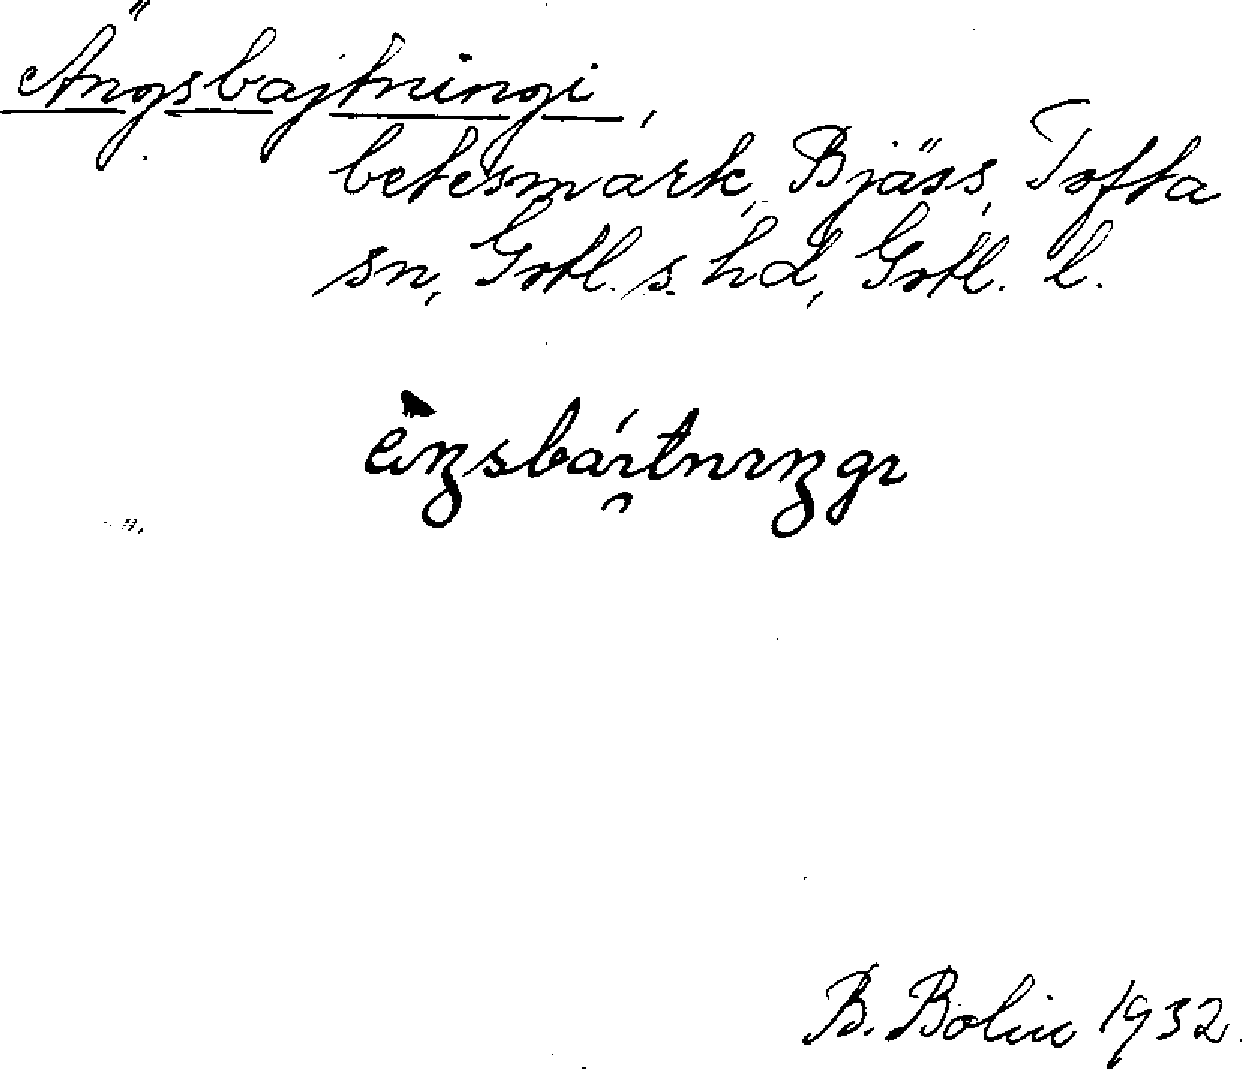 Ängsbajtningi,
betesmark, Bjäss, Tofta
sn, Gotl. s. hd, Gotl. l.
B. Bolin 1932.